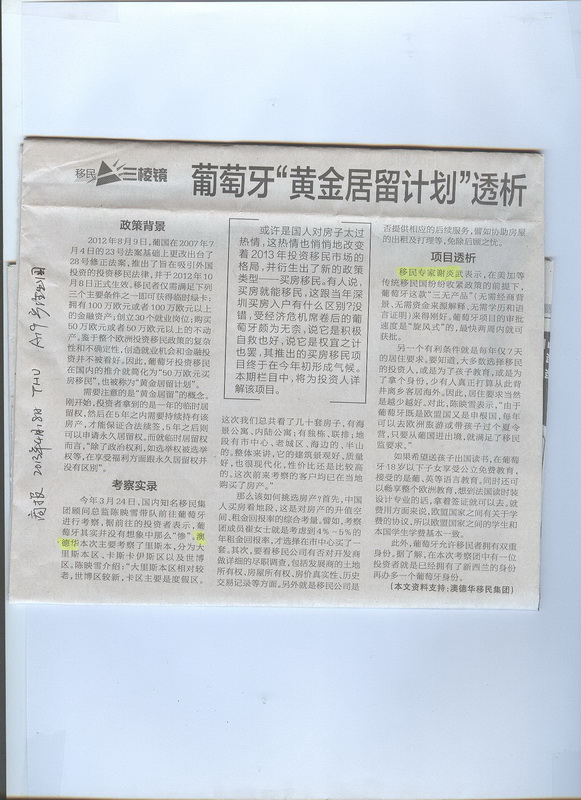 移民 三棱镜
葡萄牙“黄金居留计划”透析
政策背景
2012年8月9日,葡国在2007年7
月4日的23号法案基础上更改出台了
28号修正法案,推出了旨在吸引外国
投资的投资移民法律,并于2012年10
月8日正式生效。移民者仅需满足下列
三个主要条件之一即可获得临时绿卡:
拥有100万欧元或者100万欧元以上
的金融资产;创立30个就业岗位;购买
50万欧元或者50万欧元以上的不动
产。鉴于整个欧洲投资移民政策的复杂
性和不确定性,创造就业机会和金融投
资并不被看好。因此,葡萄牙投资移民
在国内的推介就简化为“50万元买
房移民”,也被称为“黄金居留计划”。
需要注意的是“黄金居留”的概念。
刚开始,投资者拿到的是一年的临时居
留权,然后在5年之内需要持续持有该
房产,才能保证合法续签,5年之后则
可以申请永久居留权。而就临时居留权
而言,“除了政治权利,如选举权被选举
权等,在享受福利方面跟永久居留权并
没有区别”。
考察实录
今年3月24日,国内知名移民集
团顾问总监陈映雪带队前往葡萄牙
进行考察,据前往的投资者表示,葡萄
牙其实并没有想象中那么“惨”。澳
德华本次主要考察了里斯本,分为大
里斯本区、卡斯卡伊斯区以及世博
区。陈映雪介绍:“大里斯本区相对较
老,世博区较新,卡区主要是度假区。
或许是国人对房子太过
热情,这热情也悄悄地改变
着2013年投资移民市场的
格局,并衍生出了新的政策
类型——买房移民。有人说,
买房就能移民,这跟当年深
圳买房入户有什么区别?没
错,受经济危机席卷后的葡
萄牙颇为无奈,说它是积极
自救也好,说它是权宜之计
也罢,其推出的买房移民项
目终于在今年初形成气候。
本期栏目中,将为投资人详
解该项目。
这次我们总共看了几十套房子,有海
景公寓,内陆公寓;有独栋、联排;地
段有市中心、老城区、海边的、半山
的。整体来讲,它的建筑景观好、质量
好,也很现代化,性价比还是比较高
的。这次前来考察的客户均已在当地
购买了房产。”
那么该如何挑选房产?首先,中国
人买房看地段,这是对房产的升值空
间、租金回报率的综合考量。譬如,考察
团成员崔女士就是考虑到4%~6%的
年租金回报率,才选择在市中心买了一
套。其次,要看移民公司有否对开发商做
详细的尽职调查,包括发展商的土地
所有权,房屋所有权,房价真实性、历史
交易记录等方面。另外就是移民公司是
否提供相应的后续服务,譬如协助房屋
的出租及打理等,免除后顾之忧。
项目透析
移民专家谢炎武表示,在美加等
传统移民国纷纷收紧政策的前提下,
葡萄牙这款“三无产品”(无需经商背
景,无需资金来源解释,无需学历和语
言证明)来得刚好。葡萄牙项目的审批
速度是“旋风式”的,最快两周内就可
获批。
另一个有利条件就是每年仅7天
的居住要求。要知道,大多数选择移民
的投资人,或是为了孩子教育,或是为
了拿个身份,少有人真正打算从此背
井离乡客居海外。因此,居住要求当然
是越少越好。对此,陈映雪表示,“由于
葡萄牙既是欧盟国又是申根国,每年
可以去欧洲旅游或带孩子过个夏令
营,只要从葡国进出境,就满足了移民
监要求。”
如果希望送孩子出国读书,在葡萄
牙18岁以下子女享受公立免费教育,
接受的是葡、英等语言教育;同时还可
以畅享整个欧洲教育,想到法国读时装
设计专业的话,拿着签证就可以去。就
费用方面来说,欧盟国家之间有关于学
费的协议,所以欧盟国家之间的学生和
本国学生学费基本一致。
此外,葡萄牙允许移民者拥有双重
身份。据了解,在本次考察团中有一位
投资者就是已经拥有了新西兰的身份
再办多一个葡萄牙身份。
(本文资料支持:澳德华移民集团)
商报 2013年4月18日 THU A19